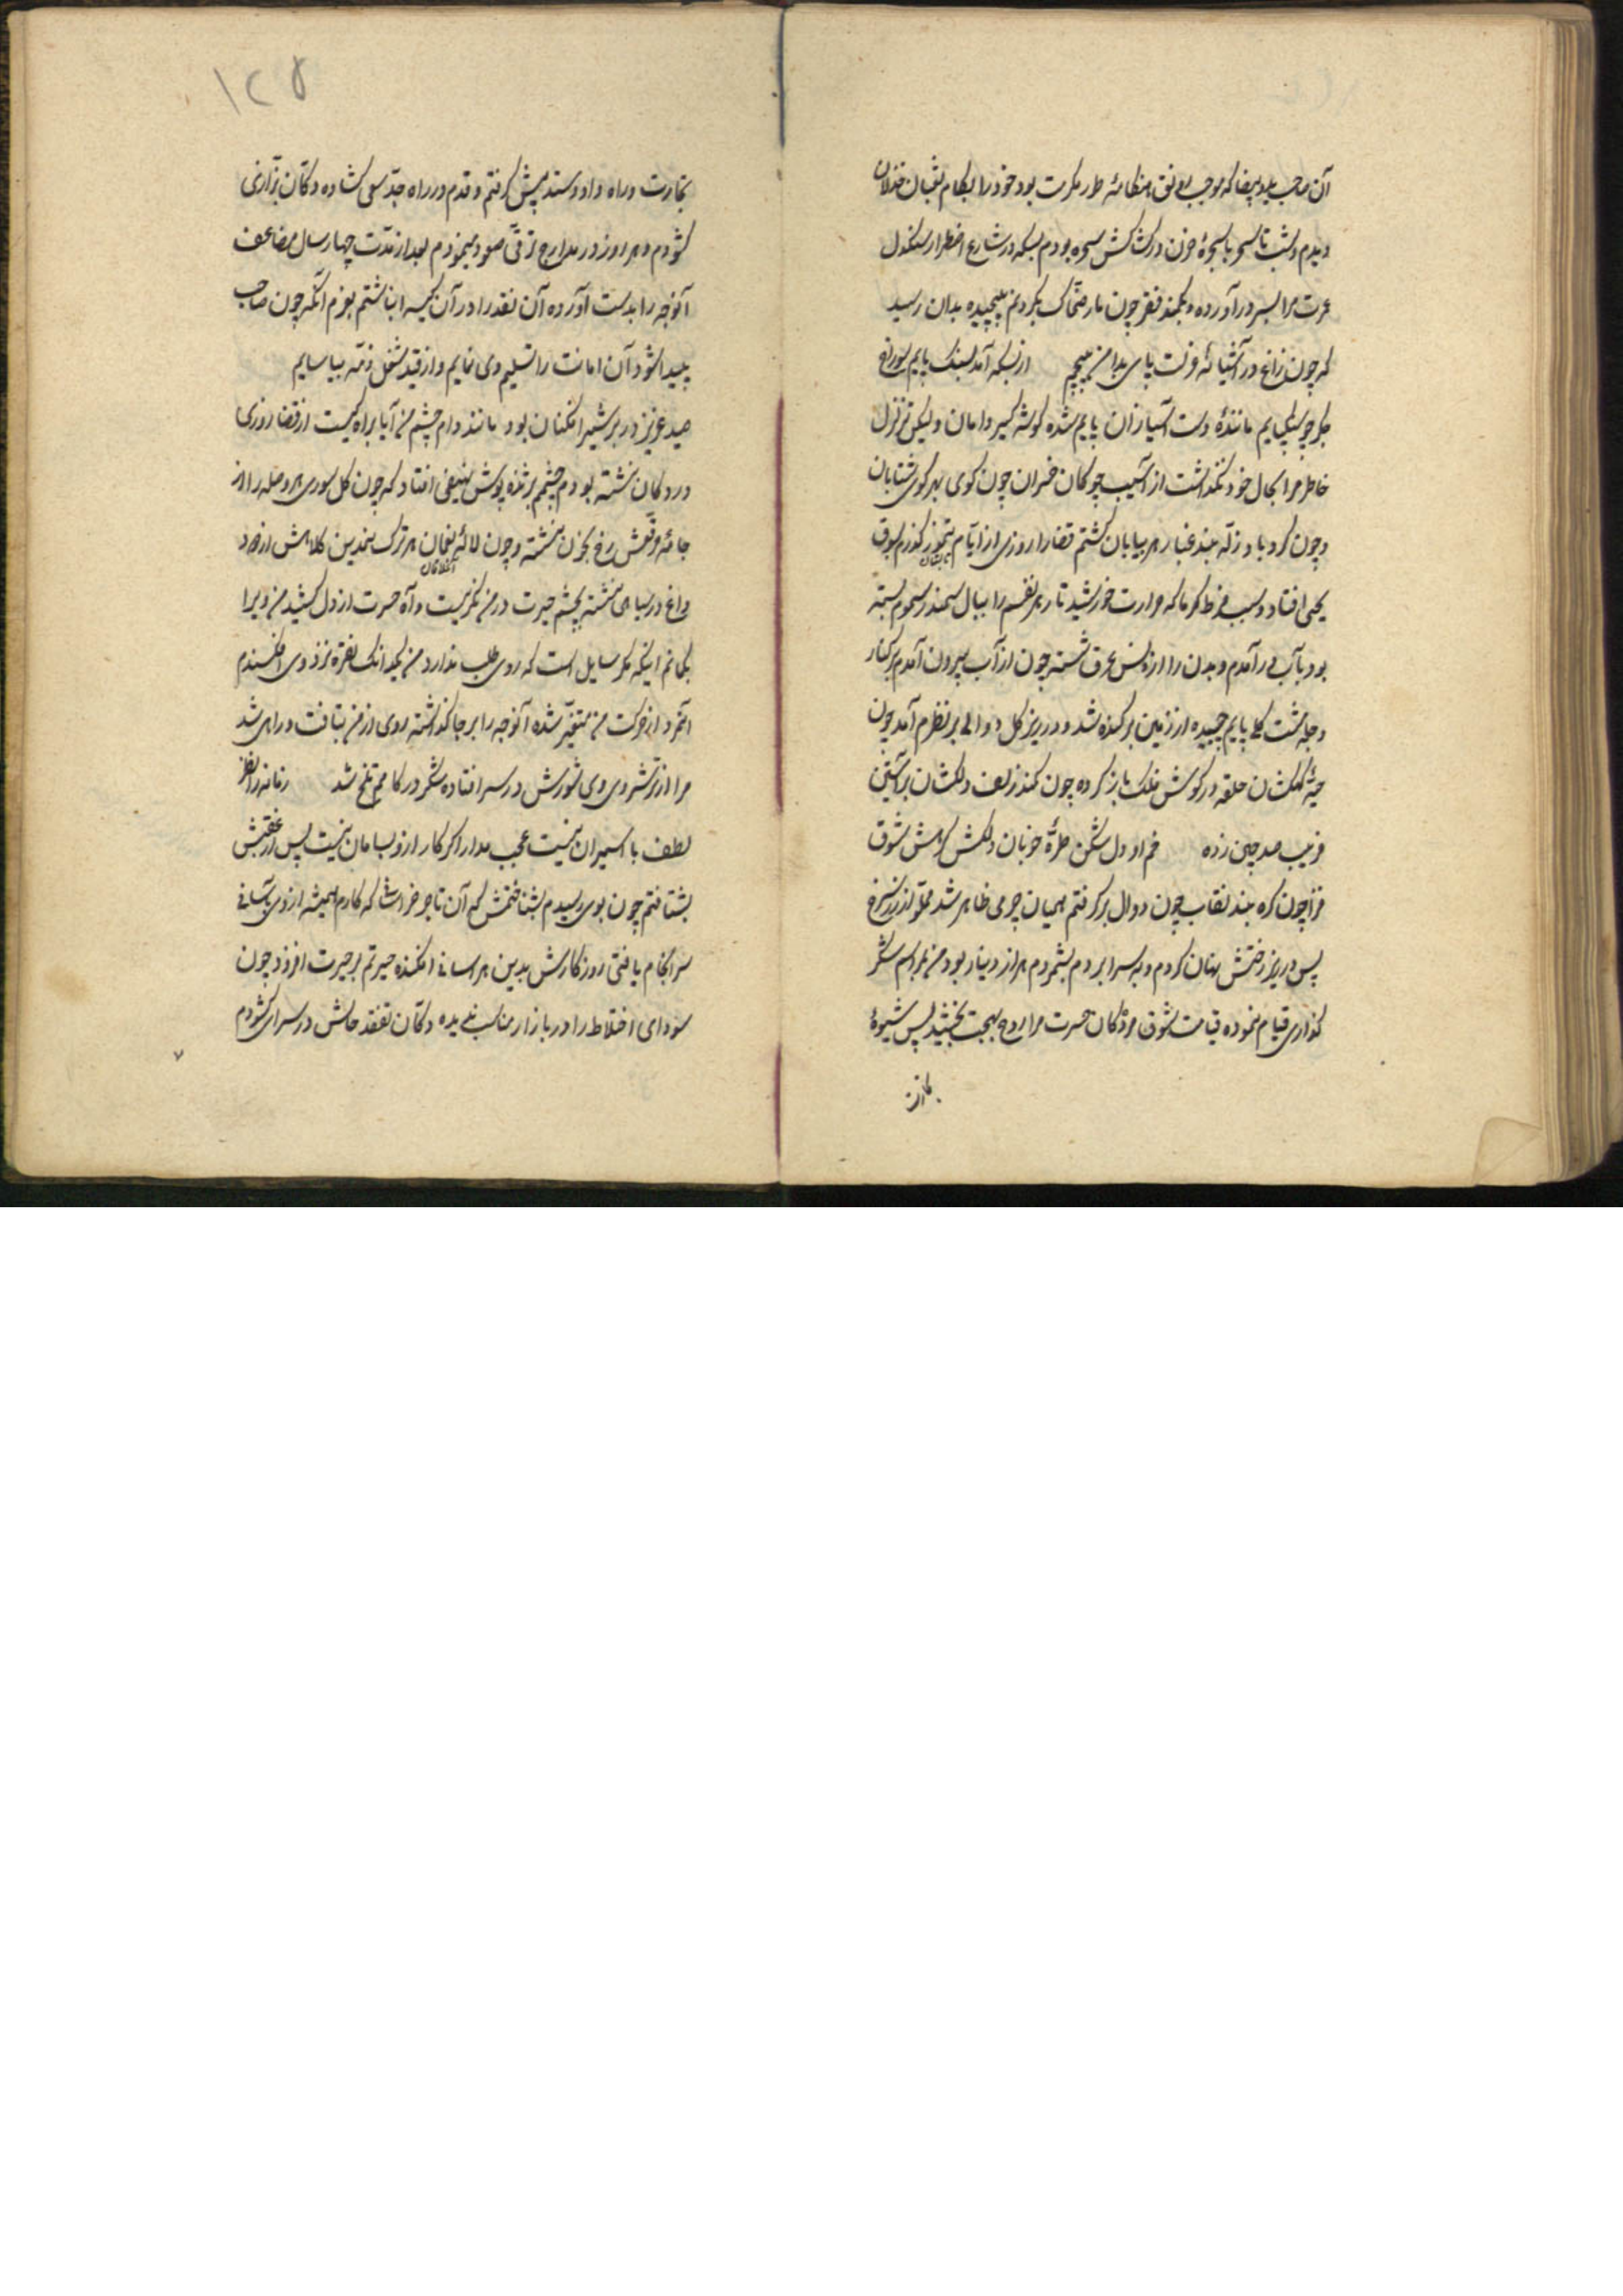 آن صاحب ید بیضا که موجب رونق هنگامهٔ طور مکرمت بود خود را بکام ثعبان خذلان
دیدم و شب تا سحر با سجرهٔ حزن در کشاکش سحره بودم بسکه در شارع اضطرار کشکول
عسرت مرا بسر در آورده و بکمند فقر چون مار ضحاک بگردنم پیچیده بدان رسید
که چون زاغ در آشیانهٔ عزلت پای بدامن پیچم از بسکه آمد بسنگ پایم سوراخ
جگر چو سنگپایم مانندهٔ دست آسیا زان پایم شده گوشه گیر دامان ولیکن تزلزل
خاطر مرا بحال خود نگذاشت از آسیب چوگان خسران چون گوی بهر کوی شتابان
و چون گردباد زله بند غبار هر بیابان گشتم قضا را روزی از ایام تموز گذرم بسوق
یحیی افتاد و بسبب فرط گرما که حرارت خورشید تار هر نفسم را ببال سمندر سموم بسته
بود بآب در آمدم و بدن را از عرق شسته چون از آب بیرون آمدم بر کنار
دجله خشت گلی پایم چسپیده از زمین بر کنده شد و در زیر گل دوالی بر نظرم آمد چون
حیهٔ کهکشان حلقه در گوش فلک باز کرده چون کمند زلف دلکشان بر آستین
فریب صد چین زده خم او دل شکن طرهٔ خوبان دلکش کاهش شوق
فزا چون گره بند نقاب چون دوال بر گرفتم همیان چرمی ظاهر شد مملو از زر سرخ
پس در زیر رختش پنهان کردم و بسرا بردم بشمردم هزار دینار بود من بمراسم شکر
گذاری قیام نموده قیامت شوق مردگان حسرت مرا روح بهجت بخشید پس شیوهٔ
تجارت
۱۲۵
تجارت و راه داد و ستد پیش گرفتم و قدم در راه جد و سعی گشاده دکان بزازی
گشودم و هر روز در مدارج ترقی صعود مینمودم بعد از مدت چهار سال مضاعف
آنوجه را بدست آورده آن نقد را در آن کیسه انباشتم بعزم آنکه چون صاحب
پیدا شود آن امانت را تسلیم وی نمایم و از قید شغل ذمه بیاسایم
صید عزیز در بر شیر افکنان بود مانند دام چشم من آیا براه کیست از قضا روزی
در دکان نشسته بودم چشمم بر ژنده پوش نهیفی افتاد که چون گل سوری هر وصله را از
جامهٔ مرقعش رخ بخون نشسته و چون لالهٔ نعمان هر ترک نمدین کلاهش از درد
داغ در سیاهی نشسته بچشم حیرت در من نگریست و آه حسرت از دل کشید من ویرا
بگمانم اینکه مگر سایل است که روی طلب ندارد من یکدانک نقره نزد وی افکندم
آنمرد از حرکت من متغیر شده آنوجه را بر جا گذاشته روی از من بتافت و راهی شد
مرا از ترشروی وی شورش در سر افتاده شکر در کامم تلخ شد زمانه را نظر
لطف با اسیران نیست عجب مدار اگر کار از و بسامان نیست پس از عقبش
بشتافتم چون بوی رسیدم بشناختمش که آن تاجر خراسانی که کارم همیشه از وی بآسانی
سرانجام یافتی روزگارش بدین هراسانی افکنده حیرتم بر حیرت افزود چون
سودای اختلاط را در بازار مناسب ندیده دکان تفقد حالش در سرای گشودم